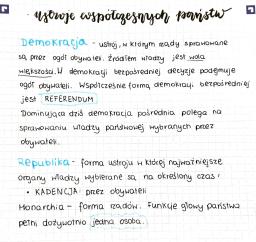 ustroje współczesnych państw
Demokracja - ustrój, w którym rządy sprawowane
są przez ogół obywateli. Źródłem władzy jest wola
większości. W demokracji bezpośredniej decyzje podejmuje
ogół obywateli. Współcześnie formą demokracji bezpośredniej
jest REFERENDUM
Dominująca dziś demokracja pośrednia polega na
sprawowaniu władzy państwowej wybranych przez
obywateli.
Republika - forma ustroju w której najważniejsze
organy władzy wybierane są na określony czas:
• KADENCJA przez obywateli
Monarchia - forma rządów. Funkcje głowy państwa
pełni dożywotnio jedna osoba.